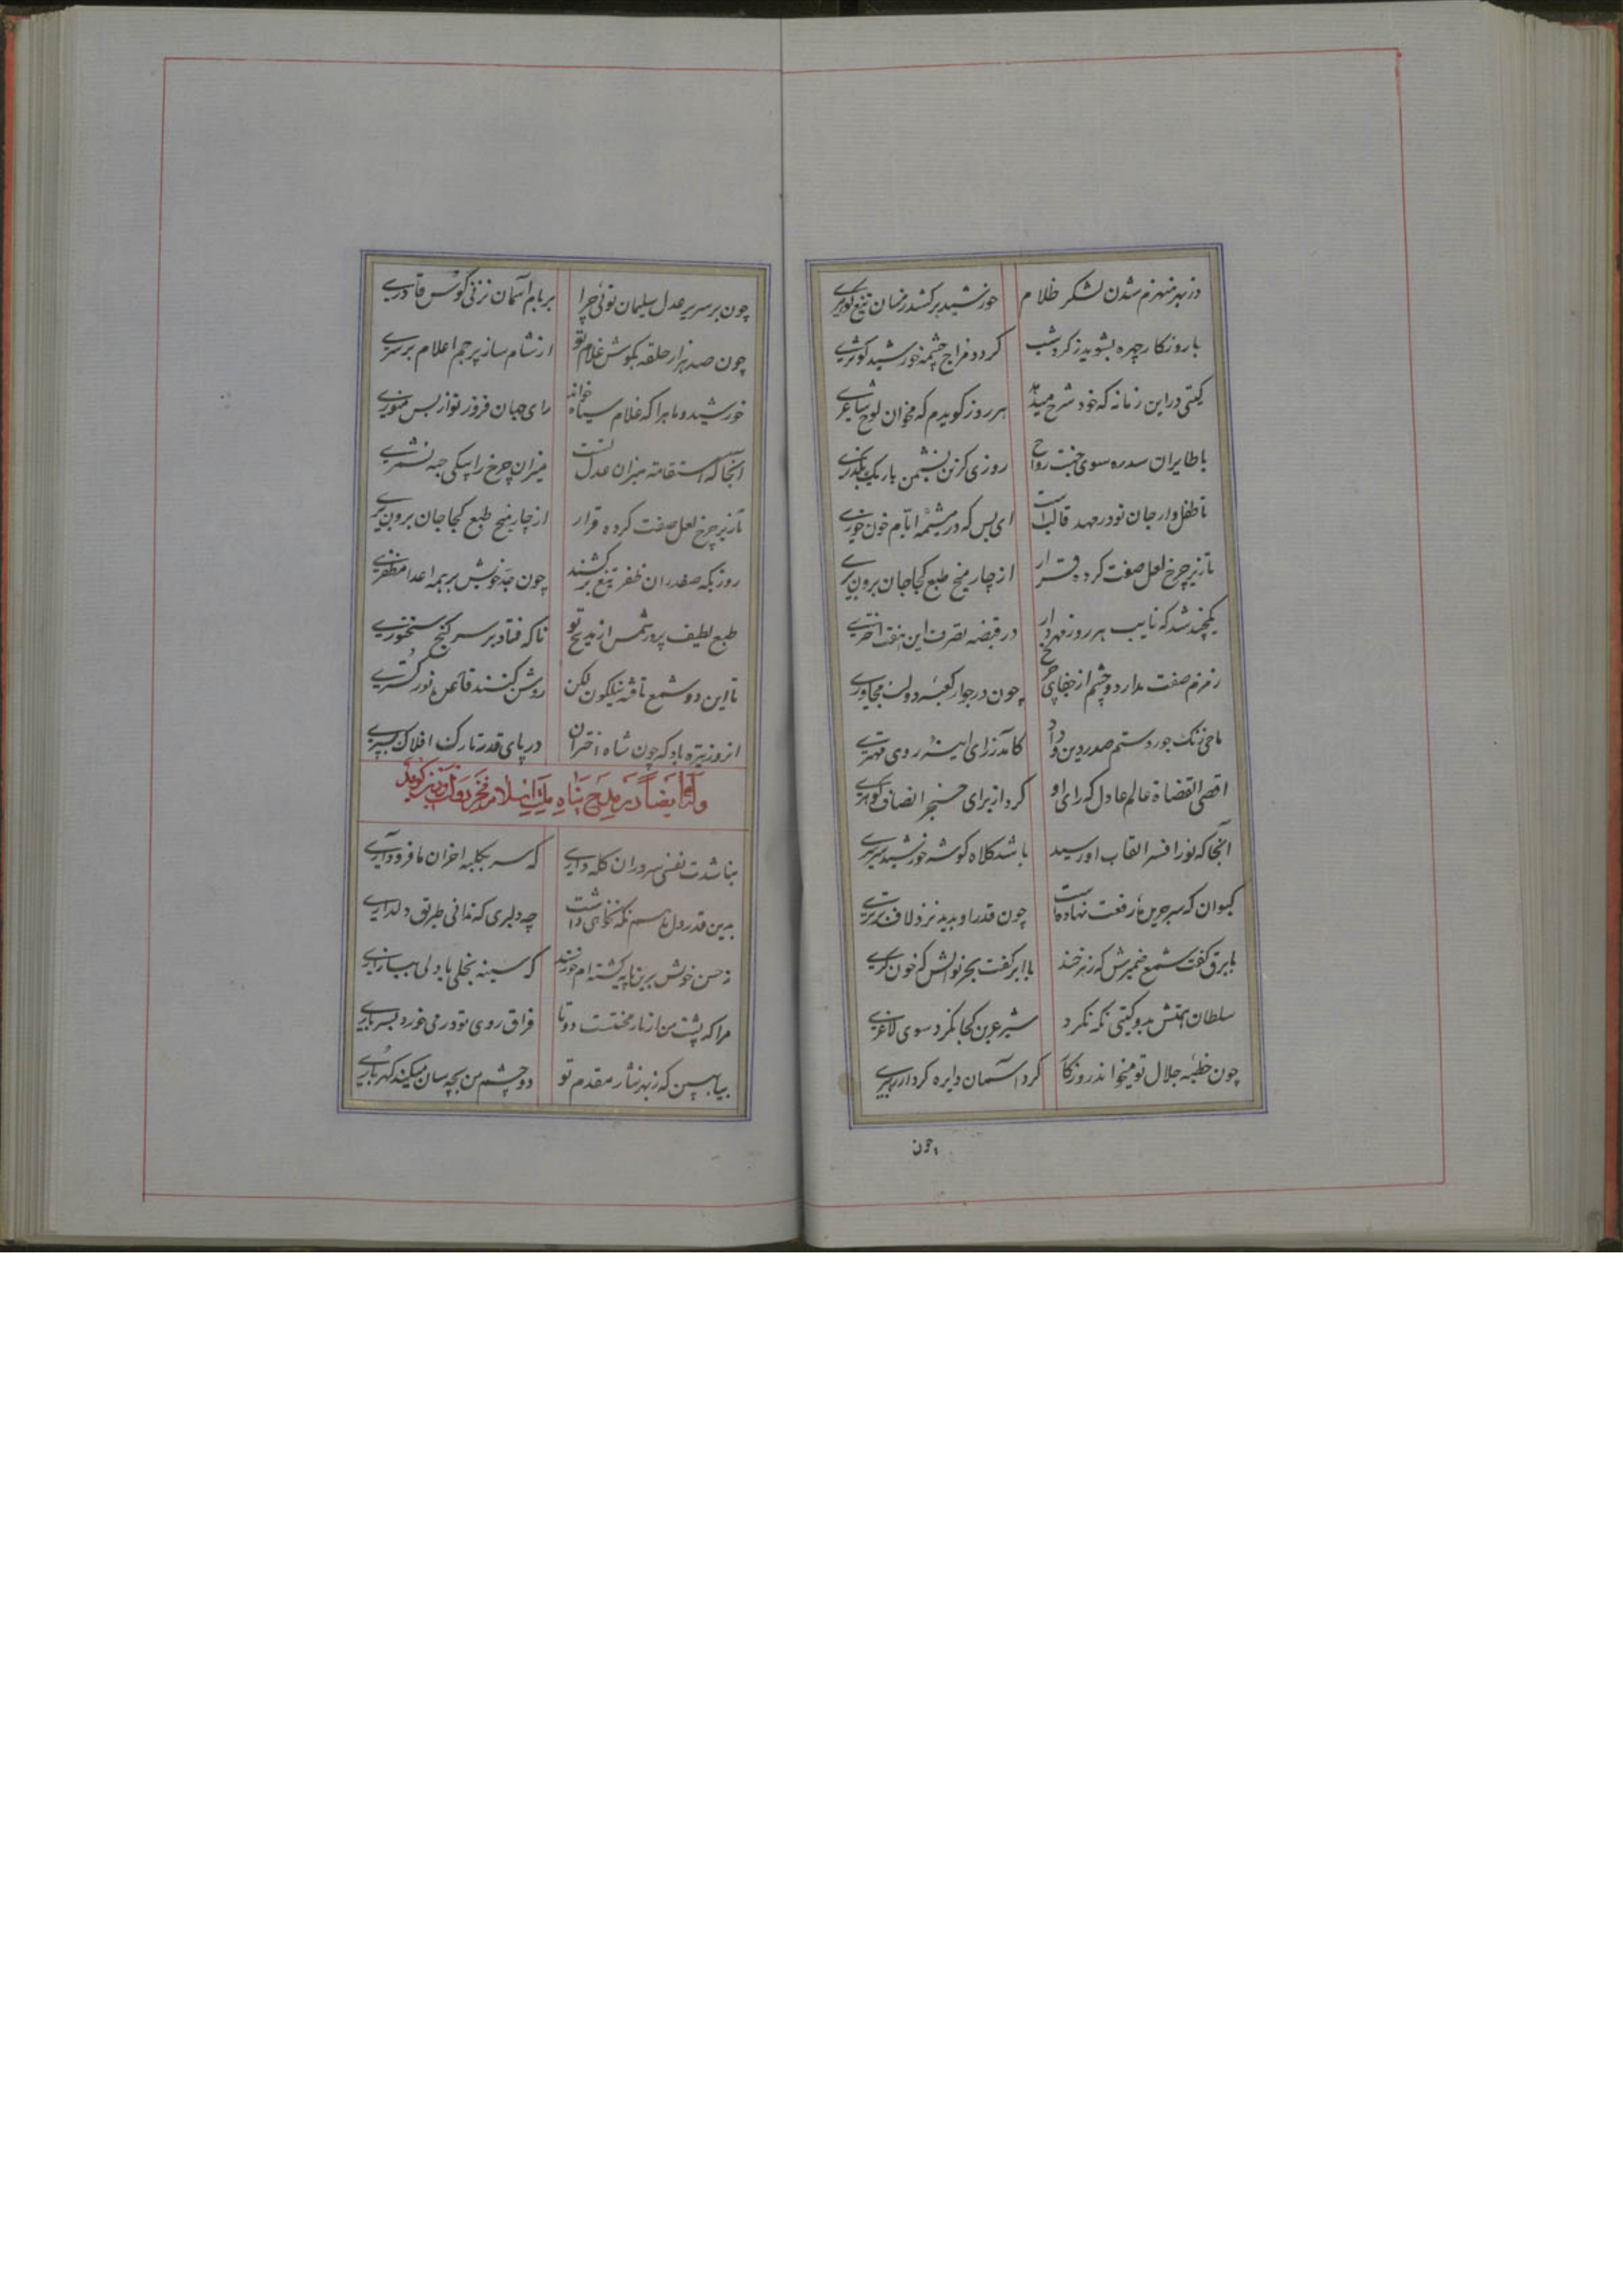 در بهر منهزم شدن لشکر ظلام خورشید برکشد زمیان تیغ
با روزکار چهره بشوید ز کرد شب کردد مزاج چشمه خورشید کوثری
کیتی در این زمانه که خود شرح میدهد هر روز کویدم که مخوان لوح شاعری
با طایران سدره سوی جنت رواح روزی کزین نشیمن باریک بگذری
تا طفل وار جان تو در مهد قالب است ای بس که در مشیمه ایام خون خوری
تا زیر چرخ لعل صفت کرده قرار از چار میخ طبع کجا جان برون بری
یکچند شد که نایب هر روز مهردار در قبضه تصرف این هفت اختری
زمزم صفت مدار دو چشم از جفای چرخ چون در جوار کعبه دولت مجاوری
ماحی زنک جور و ستم صدر دین و داد کامد ز رای اینه روی مهتری
اقضی القضاة عالم عادل که رای او کرد از برای خنجر انصاف کوهری
آنجا که نور افسر القاب او رسید باشد کلاه کوشه خورشید
کیوان که سر برین رفعت نهاده است چون قدر او بدید نزد لاف برتری
با برق کفت شمع ضمیرش که زهرخند با ابر کفت بحر نوالش که خون کری
سلطان همتش بدو کیتی نکه نکرد شیر عرین کجا نکرد سوی لاغری
چون خطبه جلال تو میخواند روزکار کرد آسمان دایره کردار
چون
چون بر سریر عدل سلیمان توئی چرا بر بام آسمان نزنی کوس قادری
چون صد هزار حلقه بکوش غلام تو از شام ساز پرجم اعلام بر سری
خورشید و ماه را که غلام سیاه خواند رای جهان فروز تو از بس منوری
آنجا که استقامة میزان عدل تست میزان چرخ را بیکی جبه نشمری
تا زیر چرخ لعل صفت کرده قرار از چار میخ طبع کجا جان برون بری
روزیکه صفدران ظفر تیغ برکشند چون جد خویش بر همه اعدا مظفری
طبع لطیف پرور شمس از مدیح تو ناکه فتاد بر سر کنج سخنوری
تا این دو شمع تافته نیلکون لکن روشن کنند قاعده نور کستری
از روز تیره باد که چون شاه اختران در پای قدر تارک افلاک بسپری
وله ایضا در مدح پناه ملت اسلام فخر دولت و دین کوید
نباشدت نفسی سروران کله داری که سر بکلبه احزان ما فرود آری
بدین قدر دل ما هم نکه نخواهی داشت چه دلبری که ندانی طریق دلداری
ز حسن خویش برین مایه کشته ام خرسند که سینه بخلی یا دلی بیازاری
مرا که پشت من از بار محنتست دوتا فراق روی تو در می خورد بسر باری
بیا ببین که ز بهر نثار مقدم تو دو چشم من بچه سان میکند کهرباری